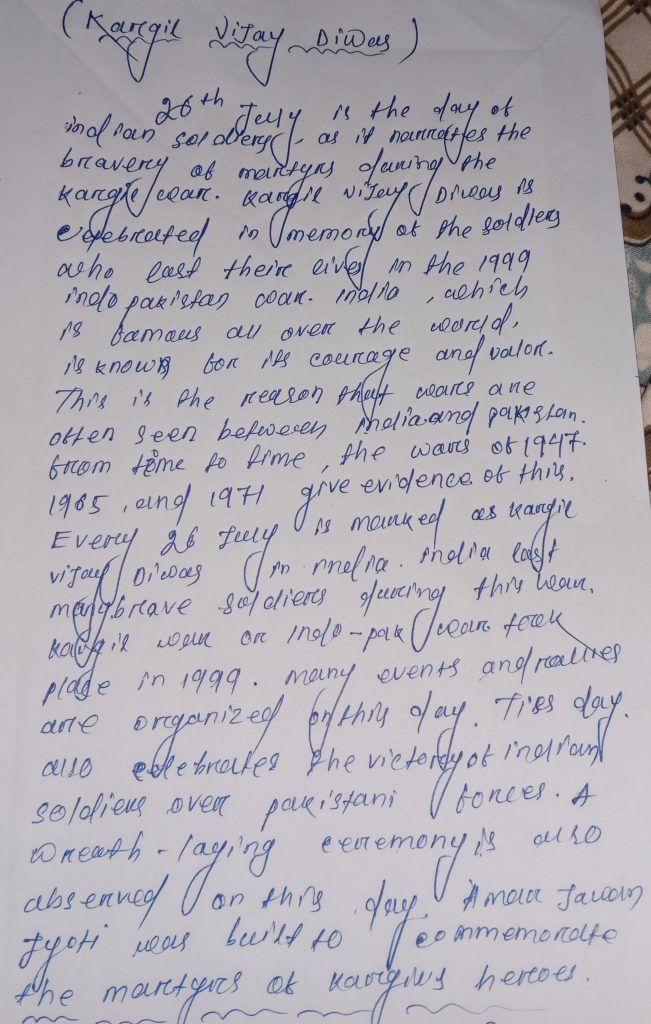 (Kargil Vijay Diwas)
26th July is the day of
indian soldiers, as it narrates the
bravery of martyrs during the
kargil war. Kargil Vijay Diwas is
celebrated in memory of the soldiers
who last their lives in the 1999
indo pakistan war. India, which
is famous all over the world,
is known for its courage and valor.
This is the reason that wars are
often seen between india and pakistan.
from time to time, the wars of 1947.
1965, and 1971 give evidence of this.
Every 26 July is marked as kargil
vijay Diwas in india. India last
many brave soldiers during this war.
kargil war or Indo-pak war took
place in 1999. many events and rallies
are organized on this day. This day.
also celebrates the victory of indian
soldiers over pakistani forces. A
wreath-laying ceremony is also
observed on this day. Amar Jawan
Jyoti was built to commemorate
the martyrs of heroes.